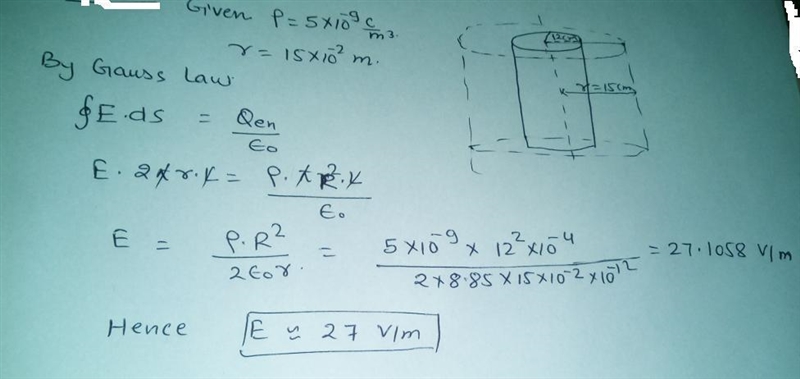 Given ρ = 5×10⁻⁹ c/m³.
r = 15×10⁻² m.
12cm
r=15cm
By Gauss Law.
∮E.ds = Qen/ϵ₀
E. 2π.r.L = ρ.πR².L/ϵ₀
E = ρ.R²/2ϵ₀r. = 5×10⁻⁹ × 12² ×10⁻⁴/2×8.85×15×10⁻²×10⁻¹² = 27.1058 V/m
Hence E ≈ 27 V/m